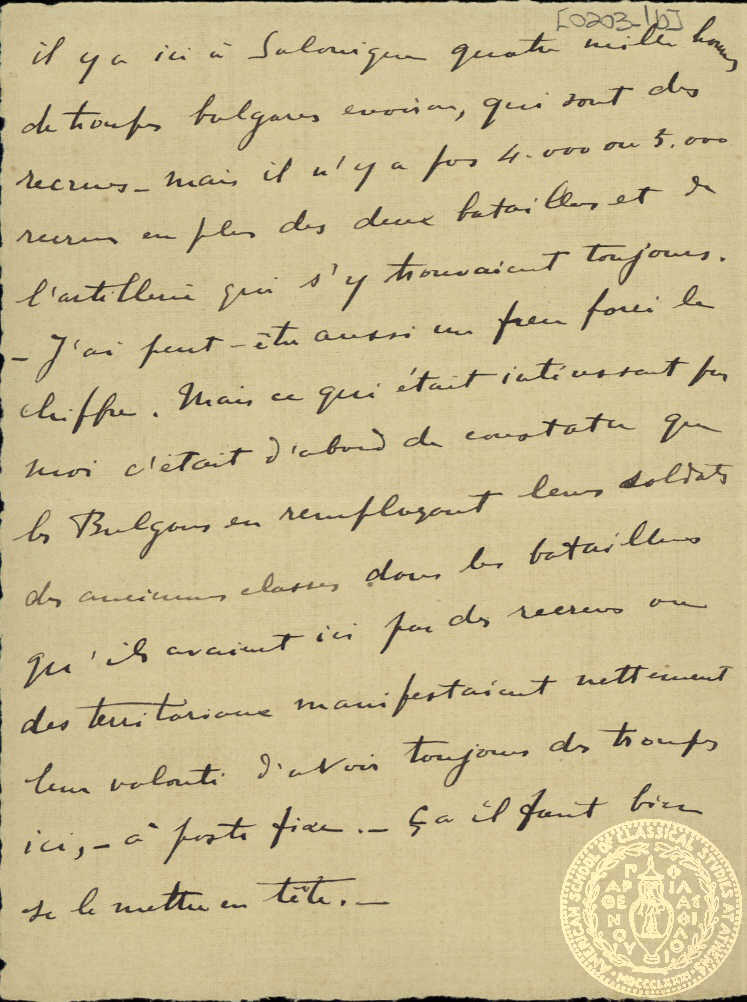 [0203-1b]
il y a ici à Salonique quatre mille hommes
de troupes bulgares environ, qui sont des
recrues – mais il n'y a pas 4.000 ou 5.000
recrues en plus des deux bataillons et de
l'artillerie qui s'y trouvaient toujours.
– J'ai peut-être aussi un peu forcé le
chiffre. Mais ce qui était intéressant pour
moi c'était d'abord de constater que
les Bulgares en remplaçant leurs soldats
des anciennes classes dans les bataillons
qu'ils avaient ici par des recrues ou
des territoriaux manifestaient nettement
leur volonté d'avoir toujours des troupes
ici, – à poste fixe. – Ça il faut bien
se le mettre en tête. –
AMERICAN SCHOOL OF CLASSICAL STUDIES AT ATHENS
MDCCCLXXXI
ΠΑΡΘΕΝΟΥ ΦΙΛΑΣ ΦΙΛΟ